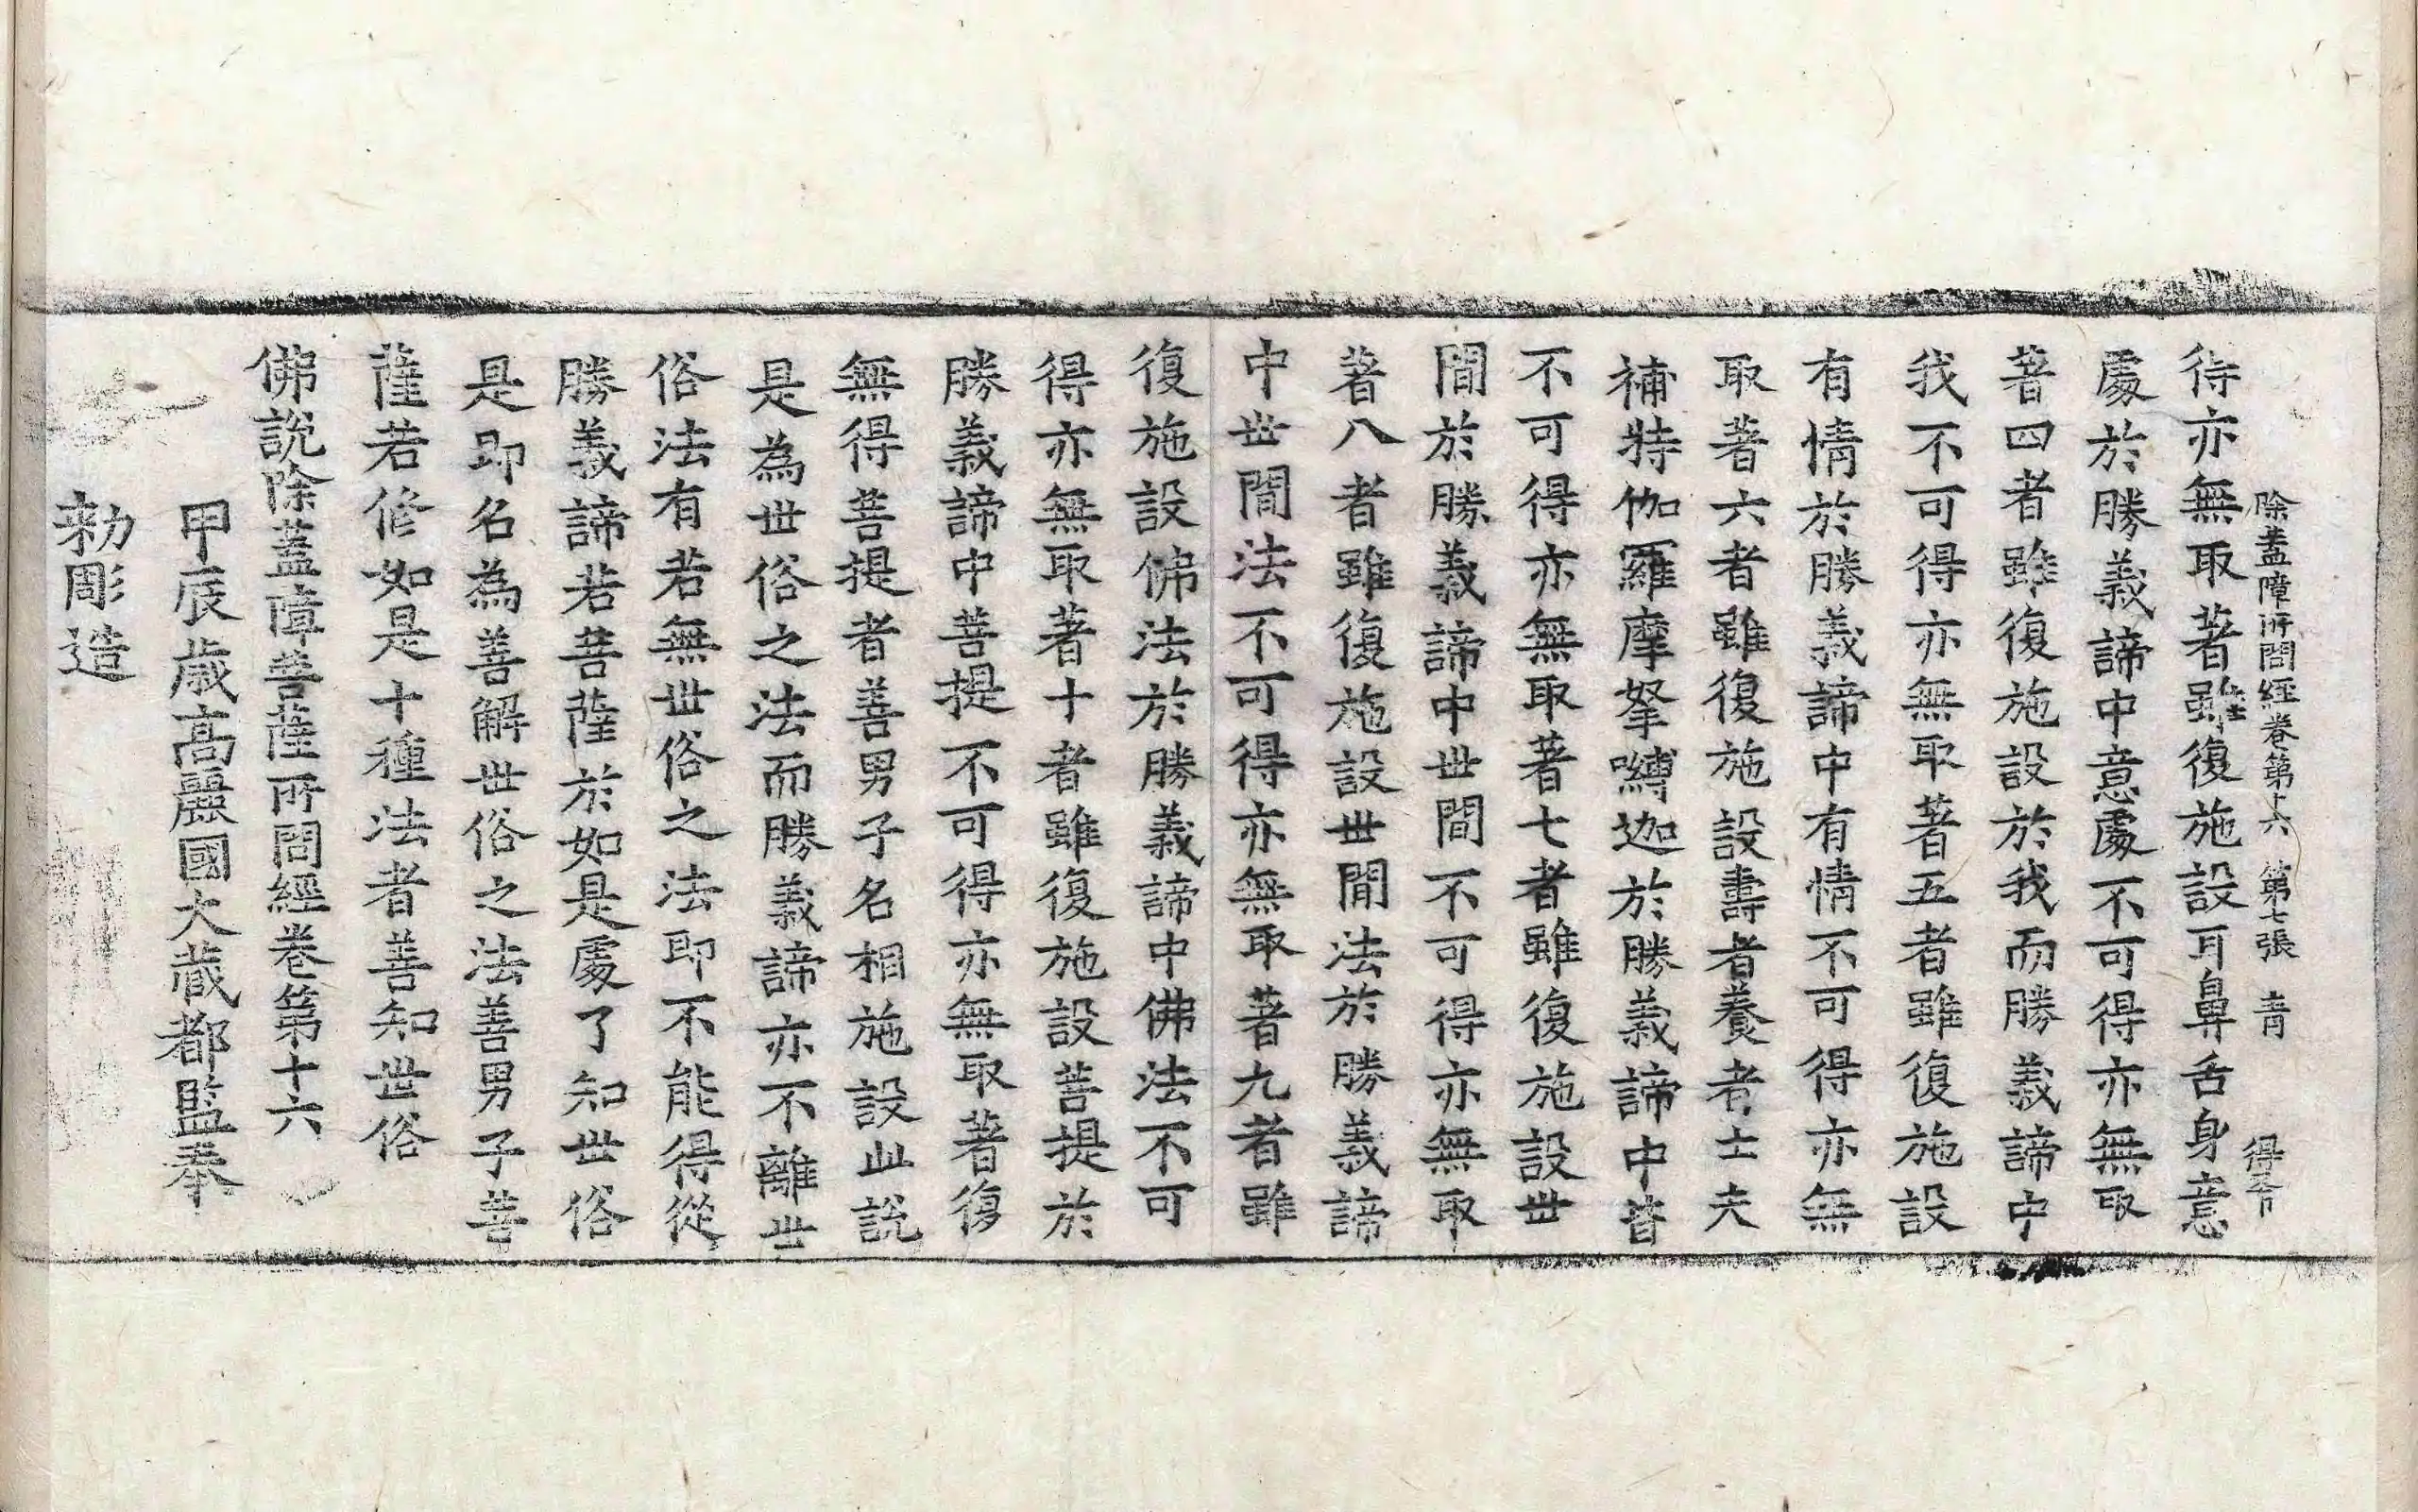 除蓋障所問經卷第十六 第七張 青
待亦無取著雖復施設耳鼻舌身意
處於勝義諦中意處不可得亦無取
著四者雖復施設於我而勝義諦中
我不可得亦無取著五者雖復施設
有情於勝義諦中有情不可得亦無
取著六者雖復施設壽者養者士夫
補特伽羅摩拏嚩迦於勝義諦中皆
不可得亦無取著七者雖復施設世
間於勝義諦中世間不可得亦無取
著八者雖復施設世間法於勝義諦
中世間法不可得亦無取著九者雖
復施設佛法於勝義諦中佛法不可
得亦無取著十者雖復施設菩提於
勝義諦中菩提不可得亦無取著復
無得菩提者善男子名相施設此說
是為世俗之法而勝義諦亦不離世
俗法有若無世俗之法即不能得從
勝義諦若菩薩於如是處了知世俗
是即名為善解世俗之法善男子菩
薩若修如是十種法者善知世俗
佛說除蓋障菩薩所問經卷第十六
甲辰歲高麗國大藏都監奉
勅彫造